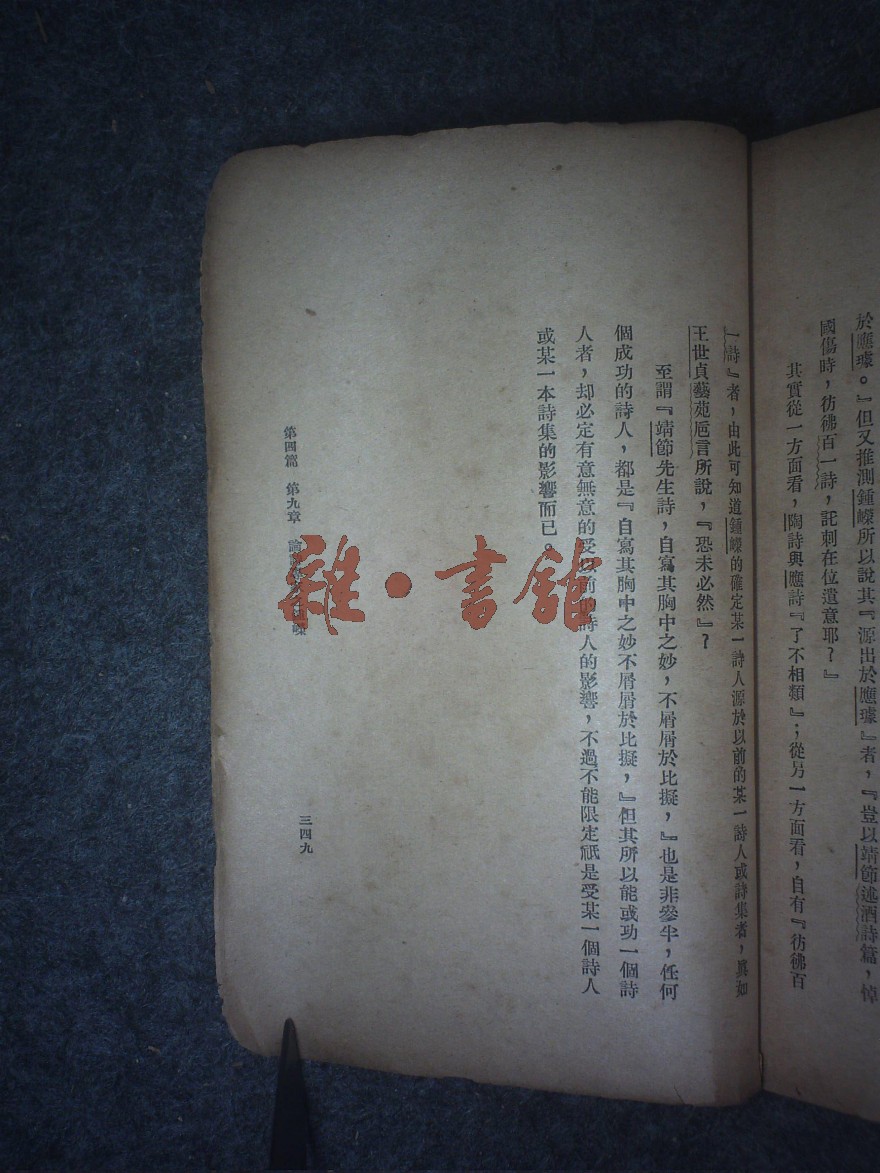 於應璩。』但又推測鍾嶸所以說其『源出於應璩』者，『豈以靖節述酒詩篇，悼
國傷時，彷彿百一詩，託刺在位遺意耶？』
其實從一方面看，陶詩與應詩『了不相類』；從另一方面看，自有『彷彿百
一詩』者，由此可知道鍾嶸的確定某一詩人源於以前的某一詩人或詩集者，眞如
王世貞藝苑巵言所說，『恐未必然』？
至謂『靖節先生詩，自寫其胸中之妙，不屑屑於比擬，』也是非參半，任何
個成功的詩人，都是『自寫其胸中之妙不屑屑於比擬，』但其所以能或功一個詩
人者，却必定有意無意的受以前的詩人的影響，不過不能限定祇是受某一個詩人
或某一本詩集的影響而已。
第四篇 第九章 論 嶸
三四九
雜·書館